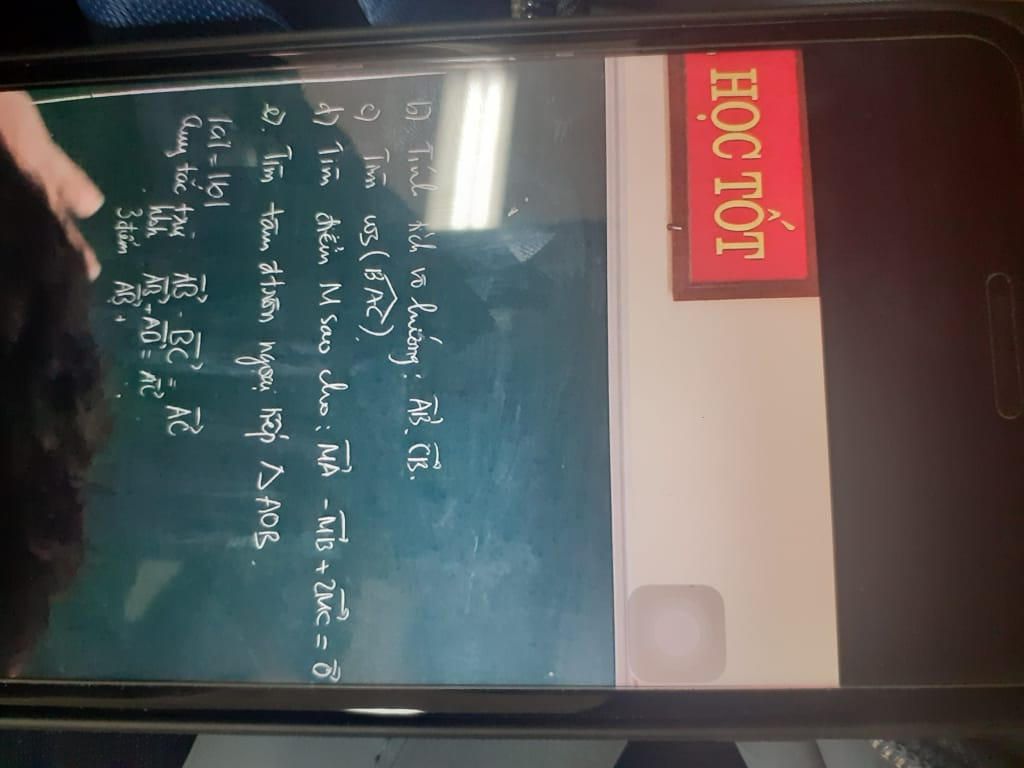 HỌC TỐT
b) Tính tích vô hướng: AB. CB.
c) Tìm cos(BAC)
d) Tìm điểm M sao cho: MA - MB + 2MC = 0
e). Tìm tâm đường ngoại tiếp △AOB.
|a| = |b|
Quy tắc trừ AB - BC = AC
hbh AB + AD = AC
3 điểm AB +